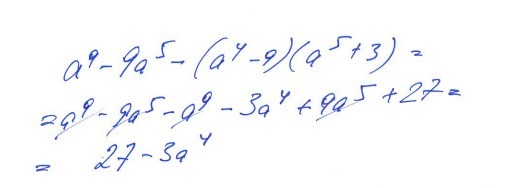 a⁹ - 9a⁵ - (a⁴ - 9)(a⁵ + 3) =
= a⁹ - 9a⁵ - a⁹ - 3a⁴ + 9a⁵ + 27 =
= 27 - 3a⁴